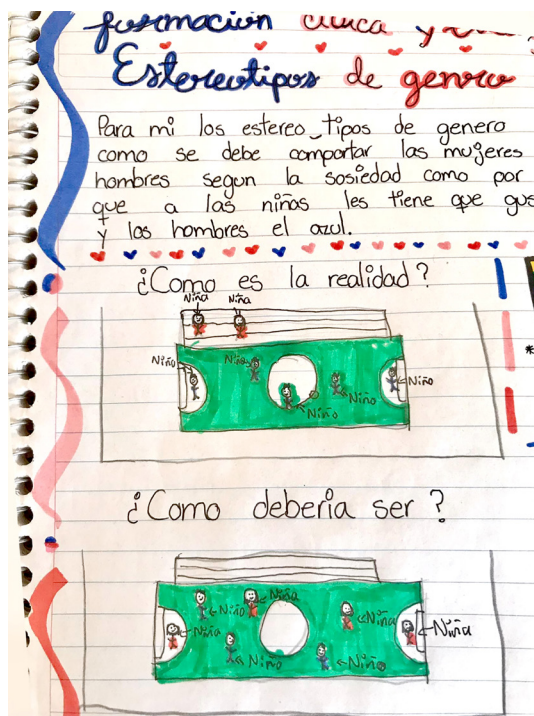 formacion civica y
Estereotipos de genero
Para mi los estereo_tipos de genero
como se debe comportar las mujeres
hombres segun la sosiedad como por
que a las niñas les tiene que gus
y los hombres el azul.
¿Como es la realidad?
Niña Niña
Niño Niños Niño Niño
Niño
¿Como deberia ser?
Niño Niña Niña
Niña Niña
Niño Niño